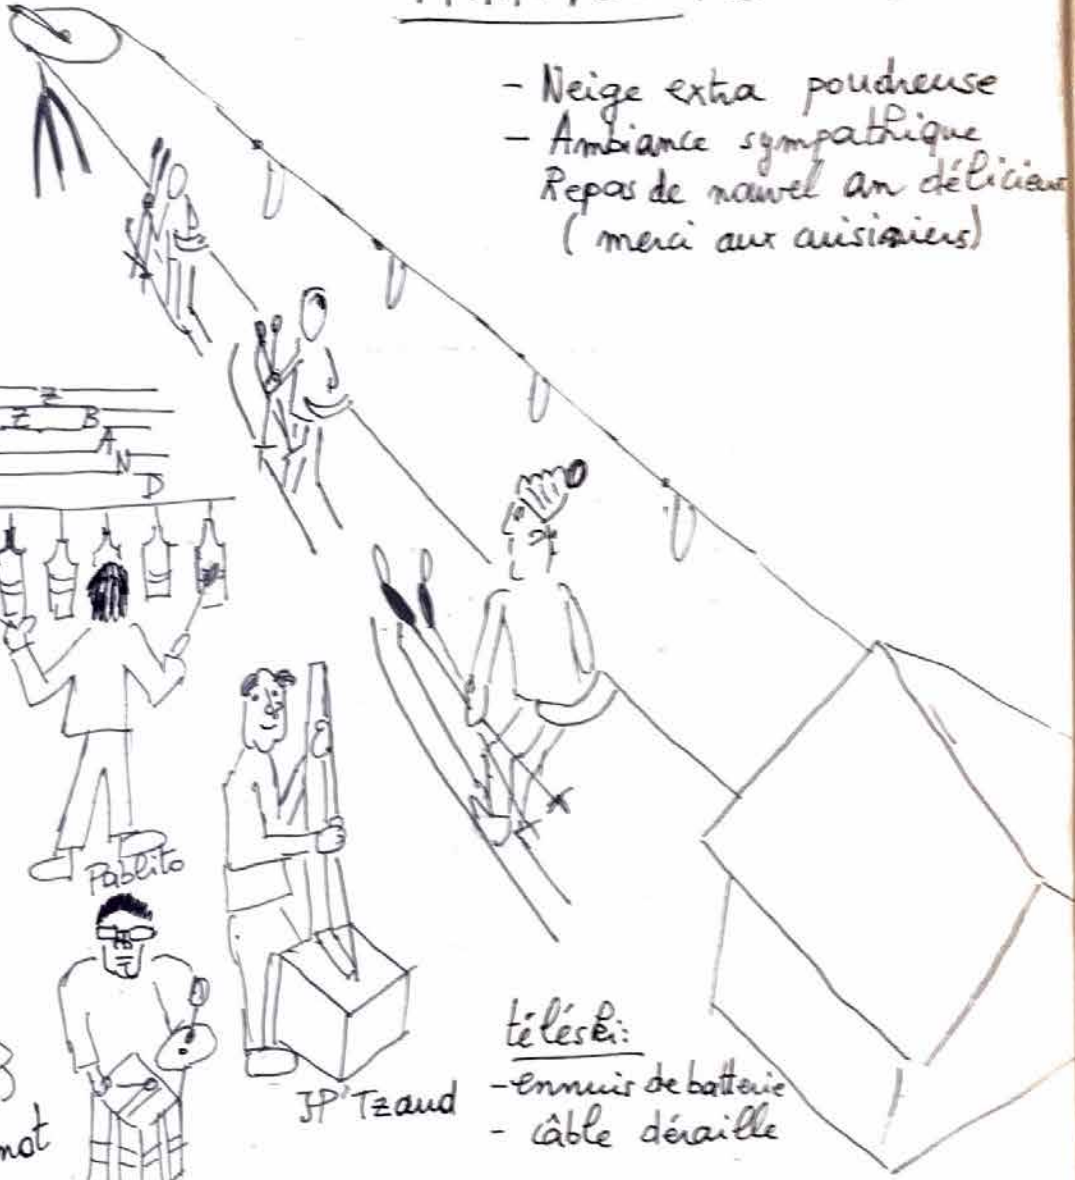 - Neige extra poudreuse
- Ambiance sympathique
Repas de nouvel an délicieux
( merci aux cuisiniers)
Z
Z B
A
N
D
Pablito
JP Tzaud
téléski:
- ennuis de batterie
- câble déraille